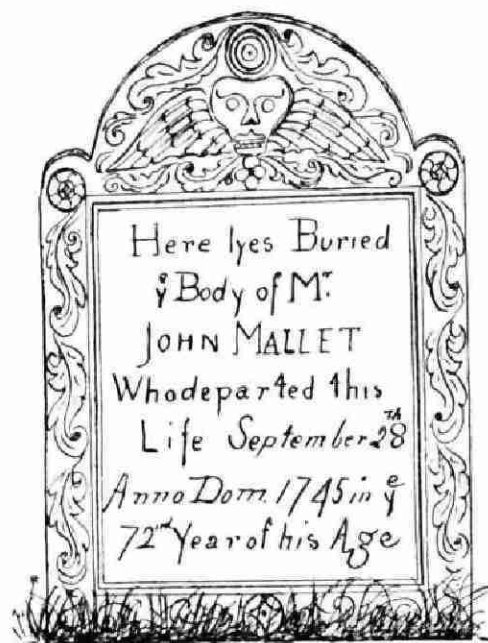 Here lyes Buried
yᵉ Body of Mʳ.
JOHN MALLET
Whodeparted this
Life September 28ᵀᴴ
Anno Dom. 1745 in yᵉ
72ⁿᵈ Year of his Age